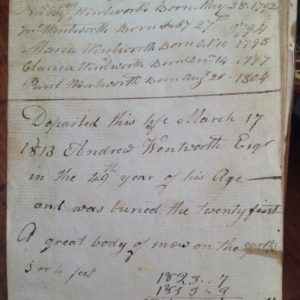 Wentworth Born May 28 1792
Wentworth Born July 27 1794
Maria Wentworth Born Oct 1798
Clarica Wentworth Born 14 1797
Paul Wentworth Born Aug 20 1804
Departed this life March 17
1813 Andrew Wentworth Esqr
in the 49th year of his Age
and was buried the twenty first
A great body of snow on the earth
3 or 4 feet
1823 7